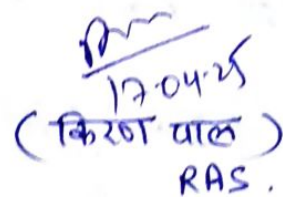 17.04.25
( किरण पाल )
RAS.